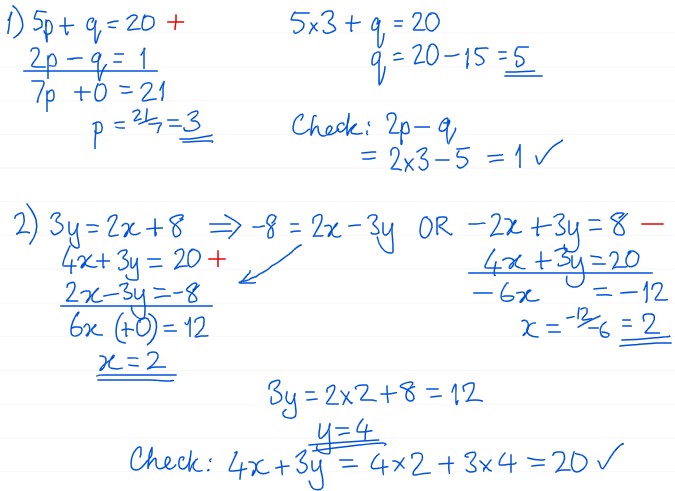 1) 5p + q = 20 +
2p - q = 1
7p + 0 = 21
p = 21/7 = 3
5×3 + q = 20
q = 20 - 15 = 5
Check: 2p - q
= 2×3 - 5 = 1 ✓
2) 3y = 2x + 8 ⇒ -8 = 2x - 3y OR -2x + 3y = 8 -
4x + 3y = 20 +
2x - 3y = -8
6x (+0) = 12
x = 2
4x + 3y = 20
-6x = -12
x = -12/-6 = 2
3y = 2×2 + 8 = 12
y = 4
Check: 4x + 3y = 4×2 + 3×4 = 20 ✓